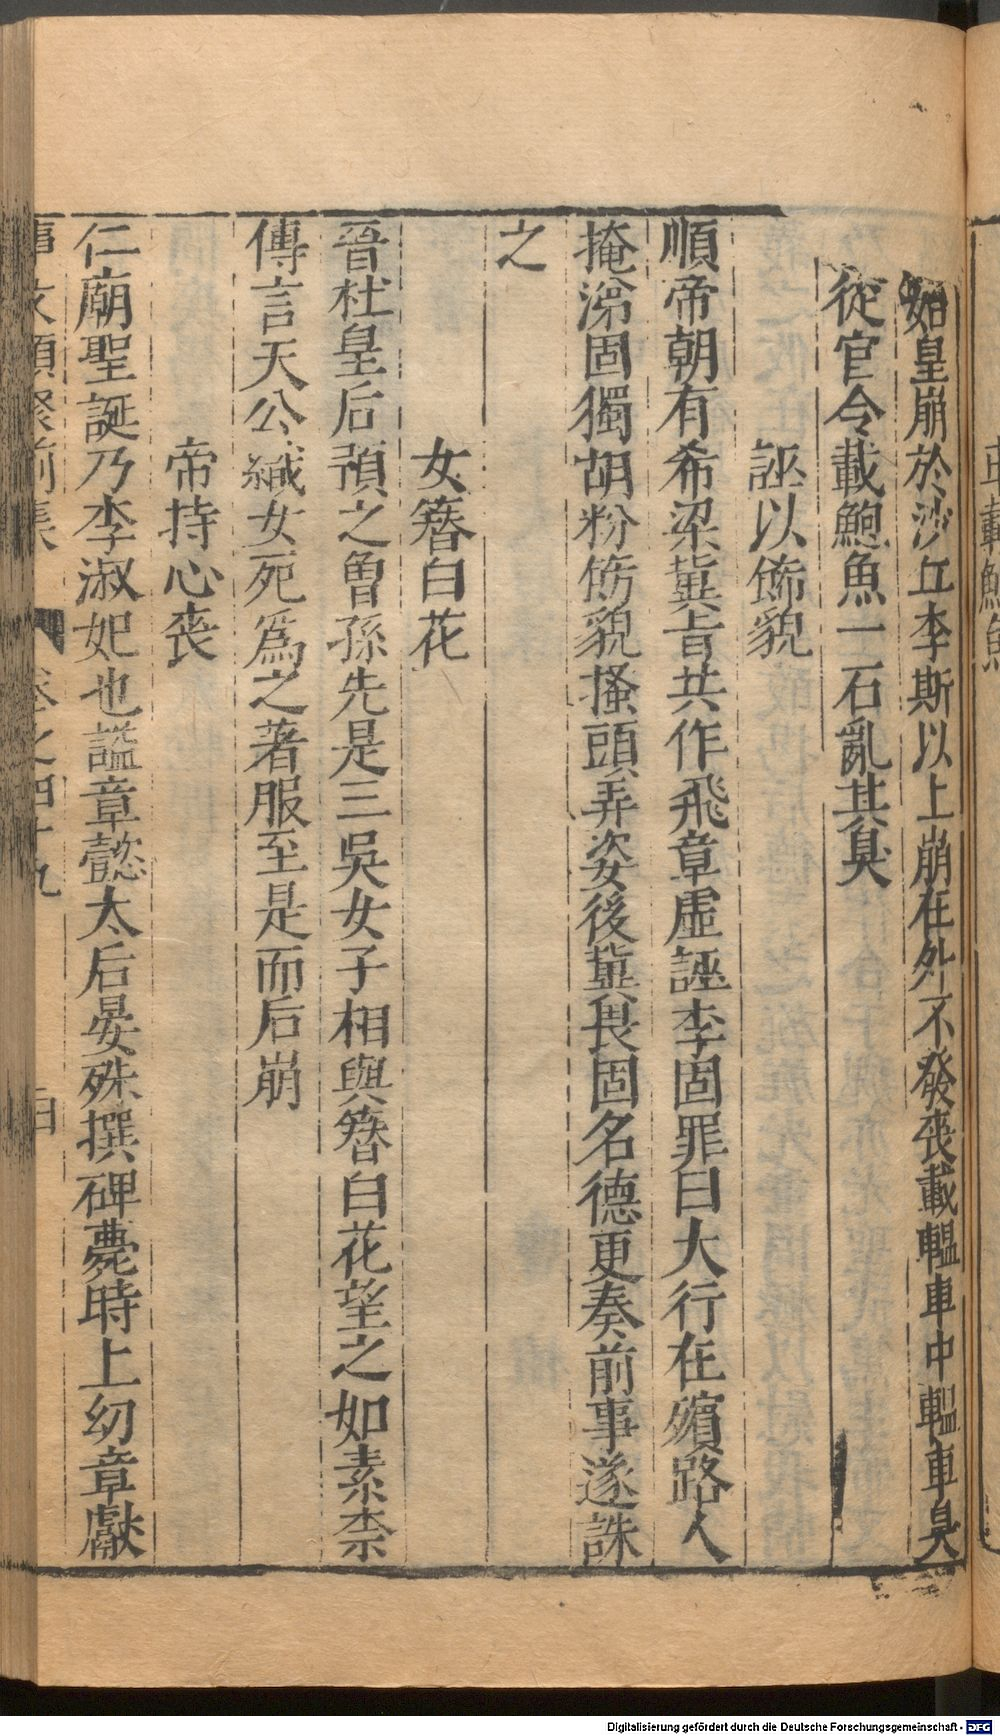 始皇崩於沙丘李斯以上崩在外不發喪載轀車中轀車臭
從官令載鮑魚一石亂其臭
誣以飾貌
順帝朝有希梁冀旨共作飛章虛誣李固罪曰大行在殯路人
掩涕固獨胡粉飾貌搔頭弄姿後冀畏固名德更奏前事遂誅
之
女簪白花
晉杜皇后預之曾孫先是三吳女子相與簪白花望之如素柰
傳言天公織女死爲之著服至是而后崩
帝持心喪
仁廟聖誕乃李淑妃也謚章懿太后晏殊撰碑薨時上幼章獻
事文類聚前集 卷之四十九
車載鮑魚
Digitalisierung gefördert durch die Deutsche Forschungsgemeinschaft - DFG